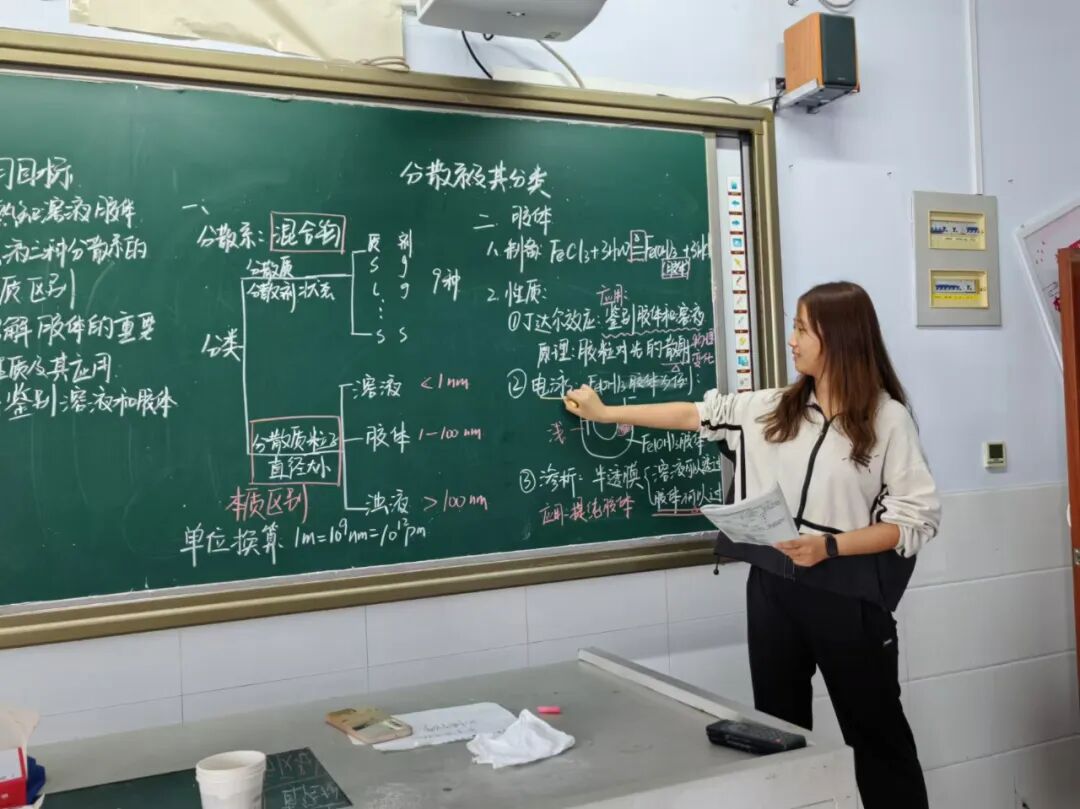 分散系及其分类
习目标
溶液胶体
液三种分散系的
质区别
解胶体的重要
性质及其应用
鉴别溶液和胶体
一、
分散系：混合物
分类
分散质
分散剂 状态
质 剂
S g
L g
9种
S S
分散质粒子
直径大小
本质区别
溶液 <1nm
胶体 1-100nm
浊液 >100nm
单位换算 1m=10⁹nm=10¹²pm
二 胶体
1.制备 FeCl₃+3H₂O
胶体
2.性质：
应用：
①丁达尔效应：鉴别胶体和溶液
原理：胶粒对光的散射
②电泳：Fe(OH)₃胶体为例：
浅
Fe(OH)₃胶体
③渗析：半透膜{溶液可以透过
胶体不可以过
应用：提纯胶体